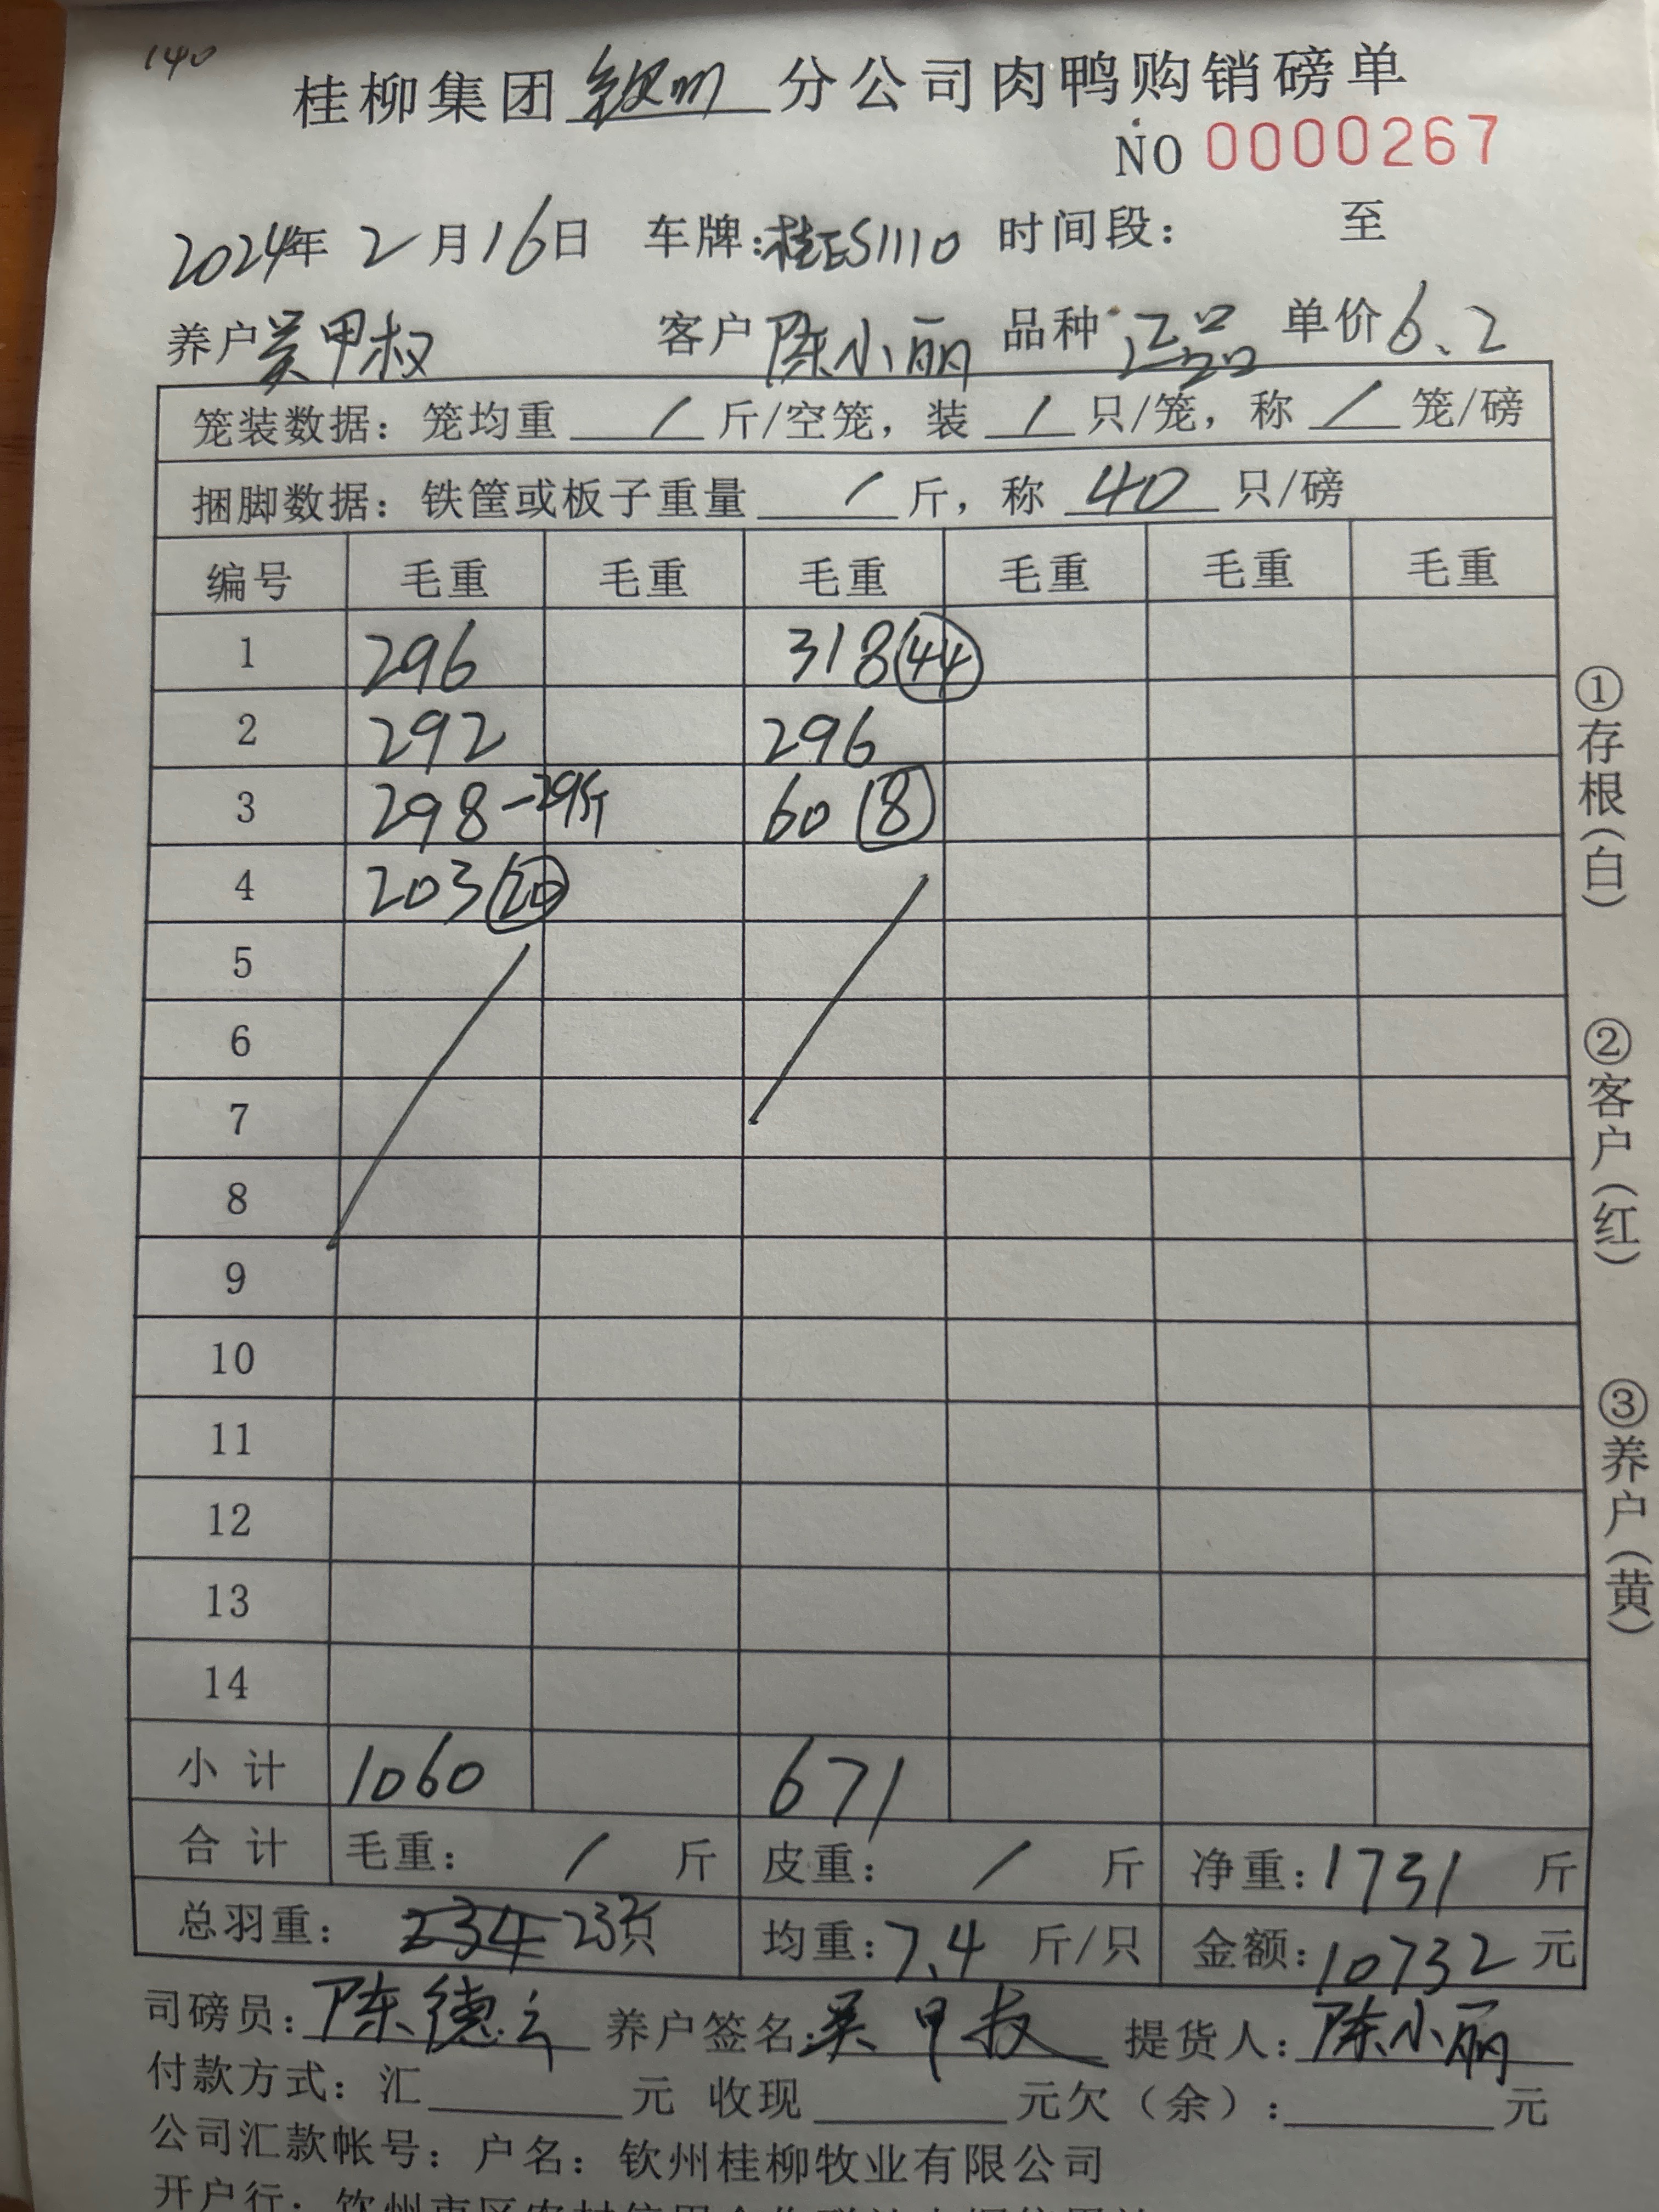 140
桂柳集团钦州分公司肉鸭购销磅单
NO 0000267
2024年 2月16日 车牌:桂ES1110 时间段: 至
养户 吴甲权 客户 陈小丽 品种 正品 单价6.2
笼装数据: 笼均重 / 斤/空笼, 装 / 只/笼, 称 / 笼/磅
捆脚数据: 铁筐或板子重量 / 斤, 称 40 只/磅
编号 毛重 毛重 毛重 毛重 毛重 毛重
1 296 318(44)
2 292 296
3 298-29斤 60(8)
4 203(20)
5
6
7
8
9
10
11
12
13
14
小计 1060 671
合计 毛重: / 斤 皮重: / 斤 净重:1731 斤
总羽重: 234 均重:7.4 斤/只 金额:10732元
司磅员:陈德云 养户签名:吴甲权 提货人:陈小丽
付款方式: 汇 元 收现 元欠(余): 元
公司汇款帐号: 户名: 钦州桂柳牧业有限公司
开户行:
①存根(白)
②客户(红)
③养户(黄)